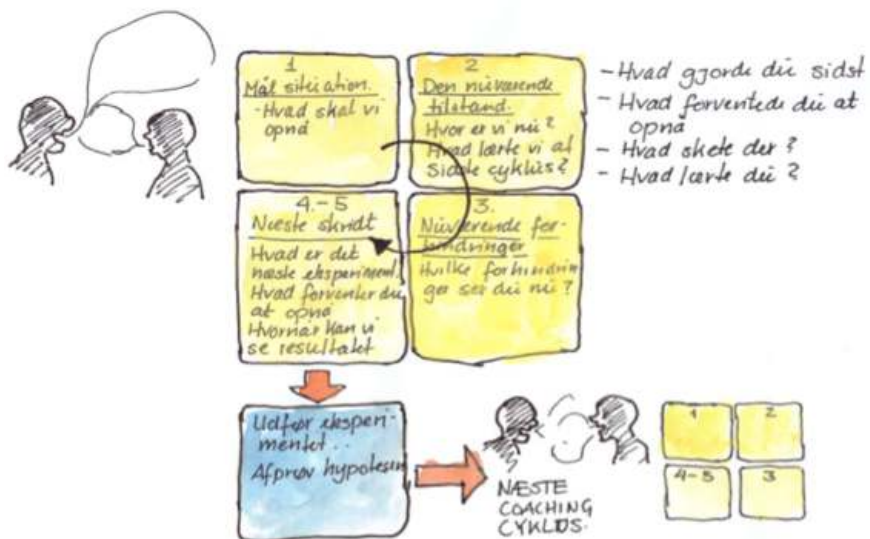 1
Mål situation.
- Hvad skal vi
opnå
2
Den nuværende
tilstand.
Hvor er vi nu?
Hvad lærte vi af
sidste cyklus?
- Hvad gjorde du sidst
- Hvad forventede du at
opnå
- Hvad skete der?
- Hvad lærte du?
4.-5
Næste skridt
Hvad er det
næste eksperiment.
Hvad forventer du
at opnå
Hvornår kan vi
se resultatet
3.
Nuværende for-
hindringer
Hvilke forhindrin-
ger ser du nu?
Udfør eksperi-
mentet..
Afprøv hypotesen
NÆSTE
COACHING
CYKLUS.
1
2
4-5
3